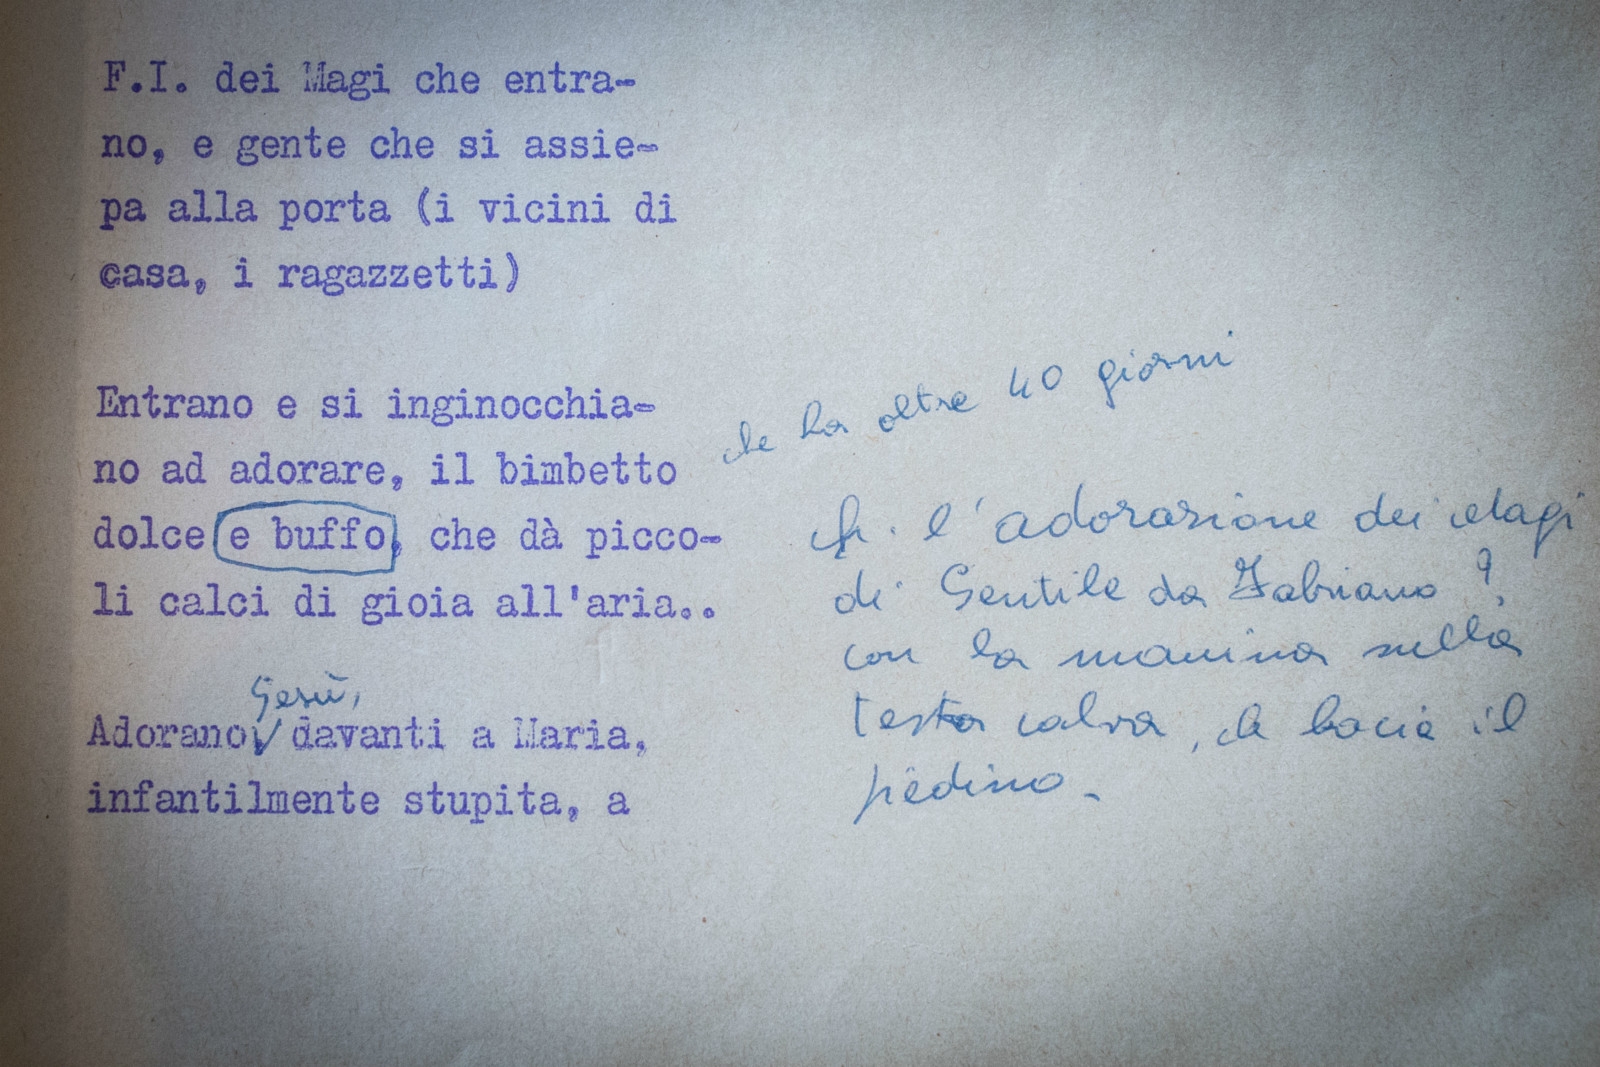 F.I. dei Magi che entra-
no, e gente che si assie-
pa alla porta (i vicini di
casa, i ragazzetti)
Entrano e si inginocchia-
no ad adorare, il bimbetto
dolce e buffo, che dà picco-
li calci di gioia all'aria..
che ha oltre 40 giorni
cfr. l'adorazione dei Magi
di Gentile da Fabriano?
con la manina sulla
testa calva, che bacia il
piedino.
Gesù,
Adorano, davanti a Maria,
infantilmente stupita, a